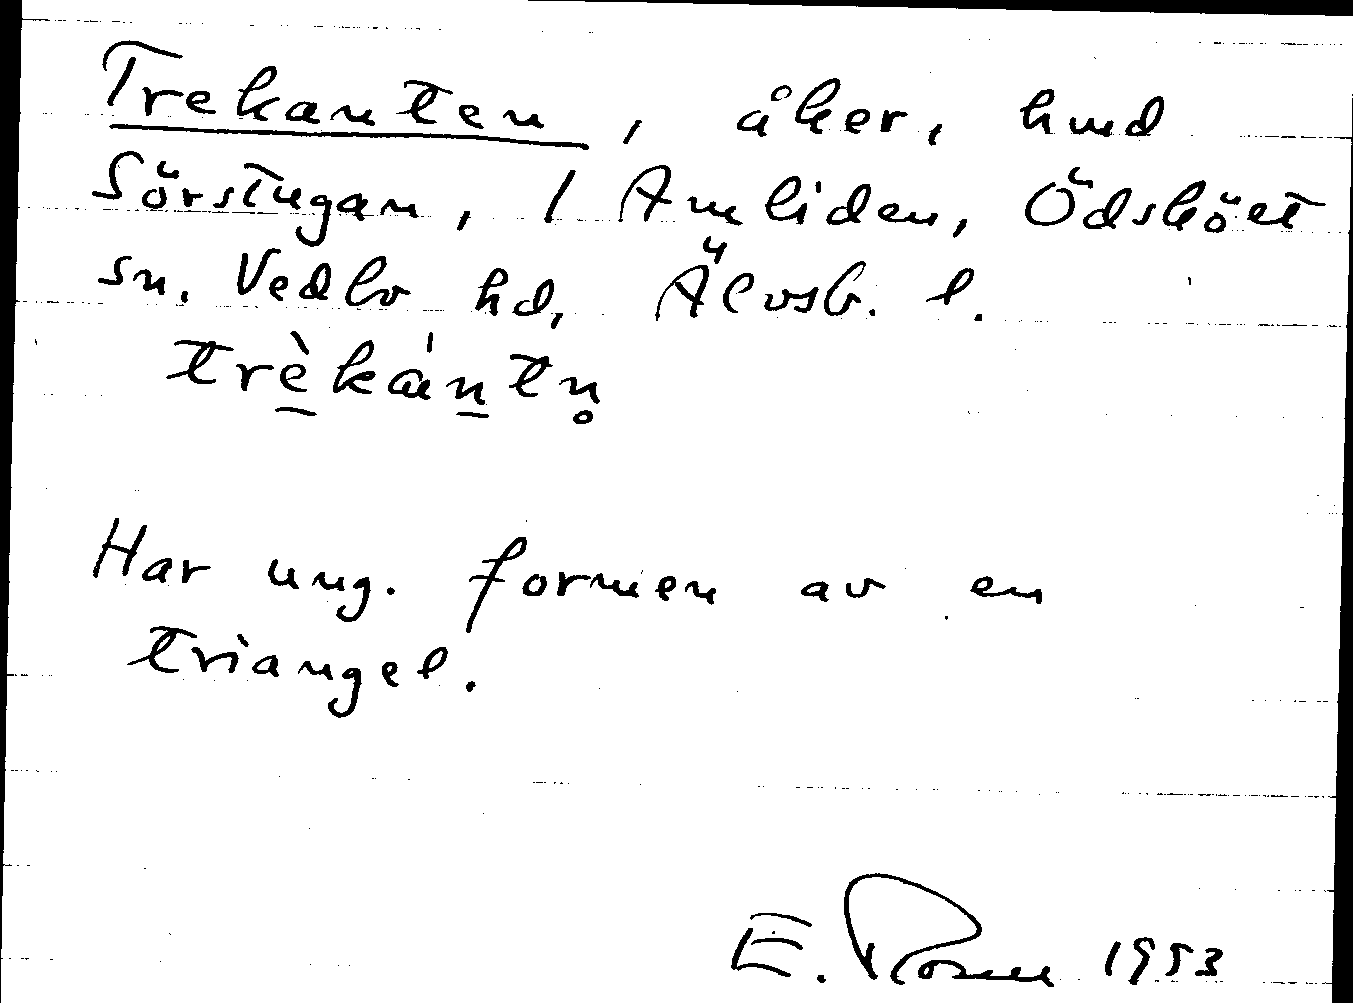 Trekanten, åker, hmd
Sörstugan, 1 Amliden, Ödsköet
sn. Vedbo hd, Älvsb. l.
trèkántn̥
Har ung. formen av en
triangel.
E. Rosell 1953